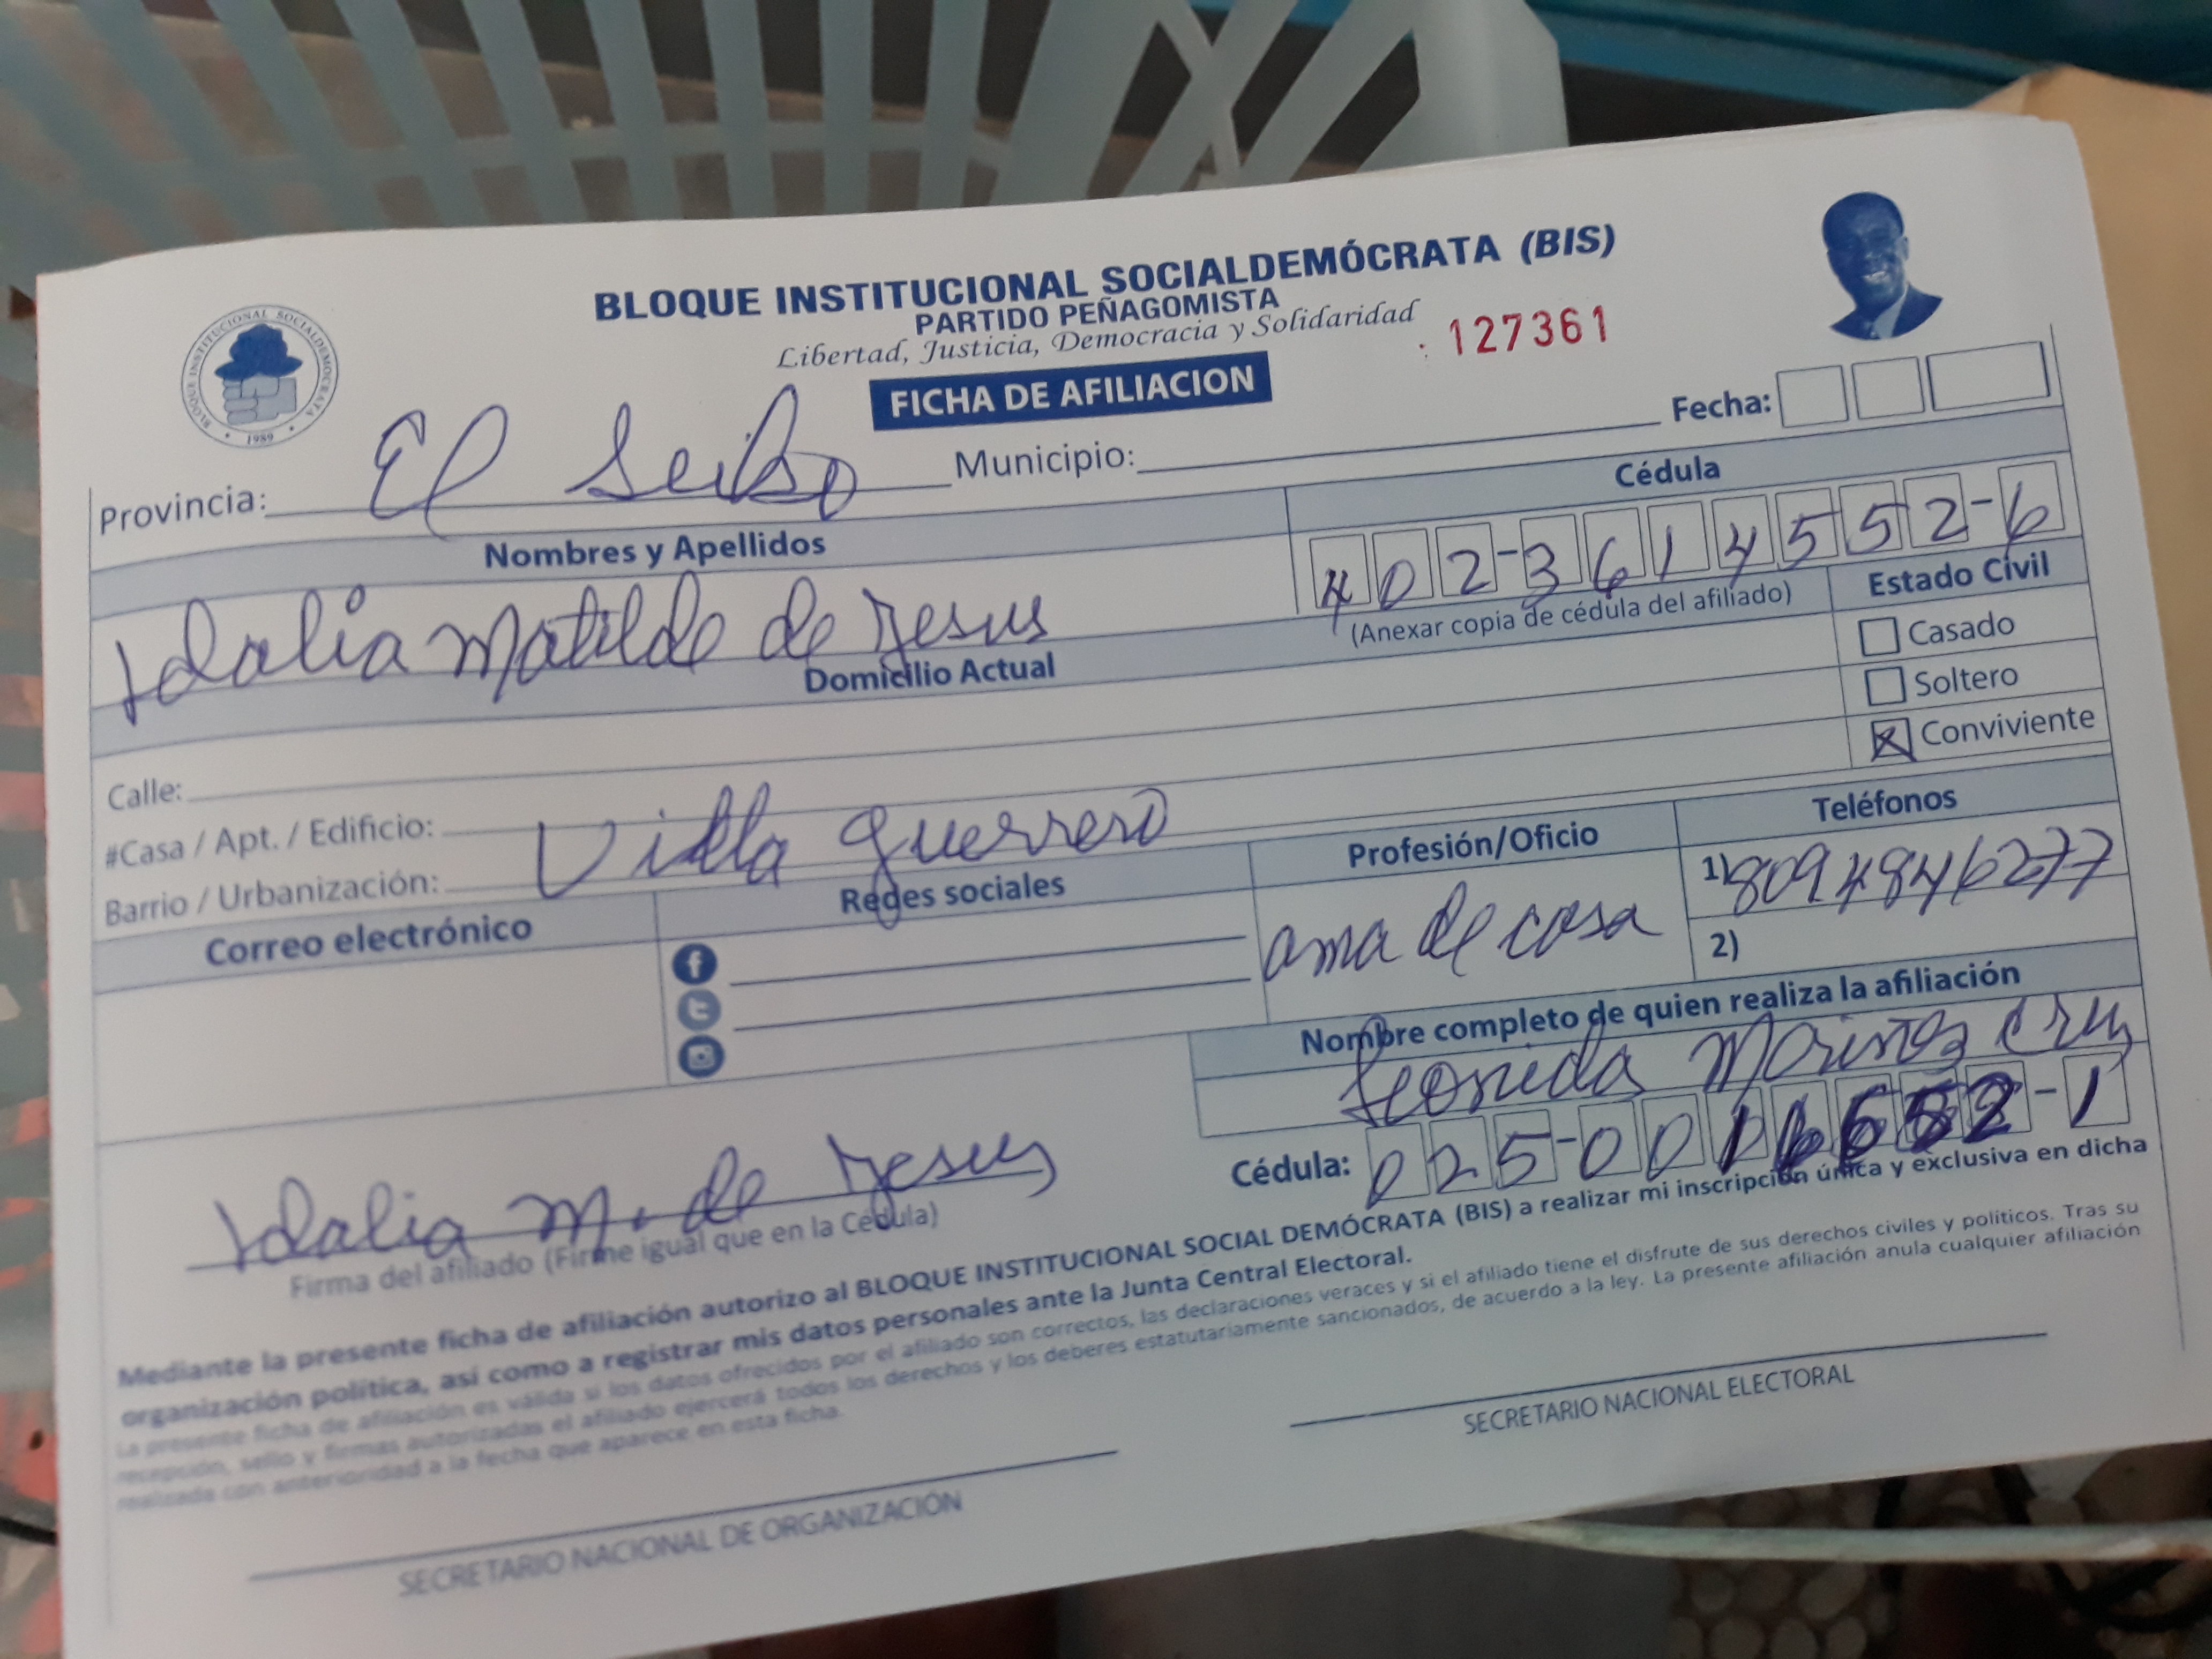 BLOQUE INSTITUCIONAL SOCIALDEMÓCRATA (BIS)
PARTIDO PEÑAGOMISTA
Libertad, Justicia, Democracia y Solidaridad
: 127361
FICHA DE AFILIACION
BLOQUE INSTITUCIONAL SOCIALDEMOCRATA
• 1989 •
Fecha:
Provincia: El Seibo Municipio:
Nombres y Apellidos
Cédula
Idalia Matilde de Jesus
402-3614552-6
(Anexar copia de cédula del afiliado)
Estado Civil
Casado
Soltero
Conviviente
Domicilio Actual
Calle:
#Casa / Apt. / Edificio:
Barrio / Urbanización: Villa Guerrero
Correo electrónico
Redes sociales
Profesión/Oficio
ama de casa
Teléfonos
1) 8094846277
2)
Nombre completo de quien realiza la afiliación
Cruz
Cédula: 025-001 2-1
Idalia M. de Jesus
Firma del afiliado (Firme igual que en la Cédula)
Mediante la presente ficha de afiliación autorizo al BLOQUE INSTITUCIONAL SOCIAL DEMÓCRATA (BIS) a realizar mi inscripción única y exclusiva en dicha
organización política, así como a registrar mis datos personales ante la Junta Central Electoral.
La presente ficha de afiliación es válida si los datos ofrecidos por el afiliado son correctos, las declaraciones veraces y si el afiliado tiene el disfrute de sus derechos civiles y políticos. Tras su
recepción, sello y firmas autorizadas el afiliado ejercerá todos los derechos y los deberes estatutariamente sancionados, de acuerdo a la ley. La presente afiliación anula cualquier afiliación
realizada con anterioridad a la fecha que aparece en esta ficha.
SECRETARIO NACIONAL DE ORGANIZACIÓN
SECRETARIO NACIONAL ELECTORAL